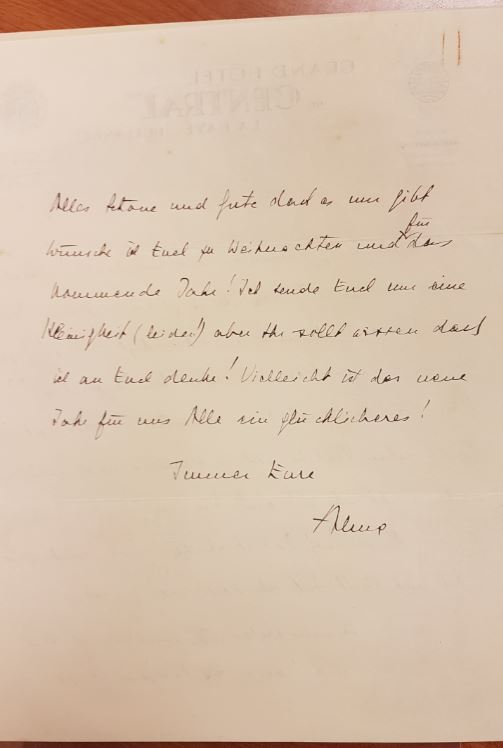 GRAND HOTEL
CENTRAL
LA HAYE
Alles Schöne und gute dass es nur gibt
wünsche ich Euch zu Weihnachten und für das
kommende Jahr! Ich sende Euch nur eine
Kleinigkeit (leider!) aber Ihr sollt wissen dass
ich an Euch denke! Vielleicht ist das neue
Jahr für uns Alle ein glücklicheres!
Immer Eure
Alma